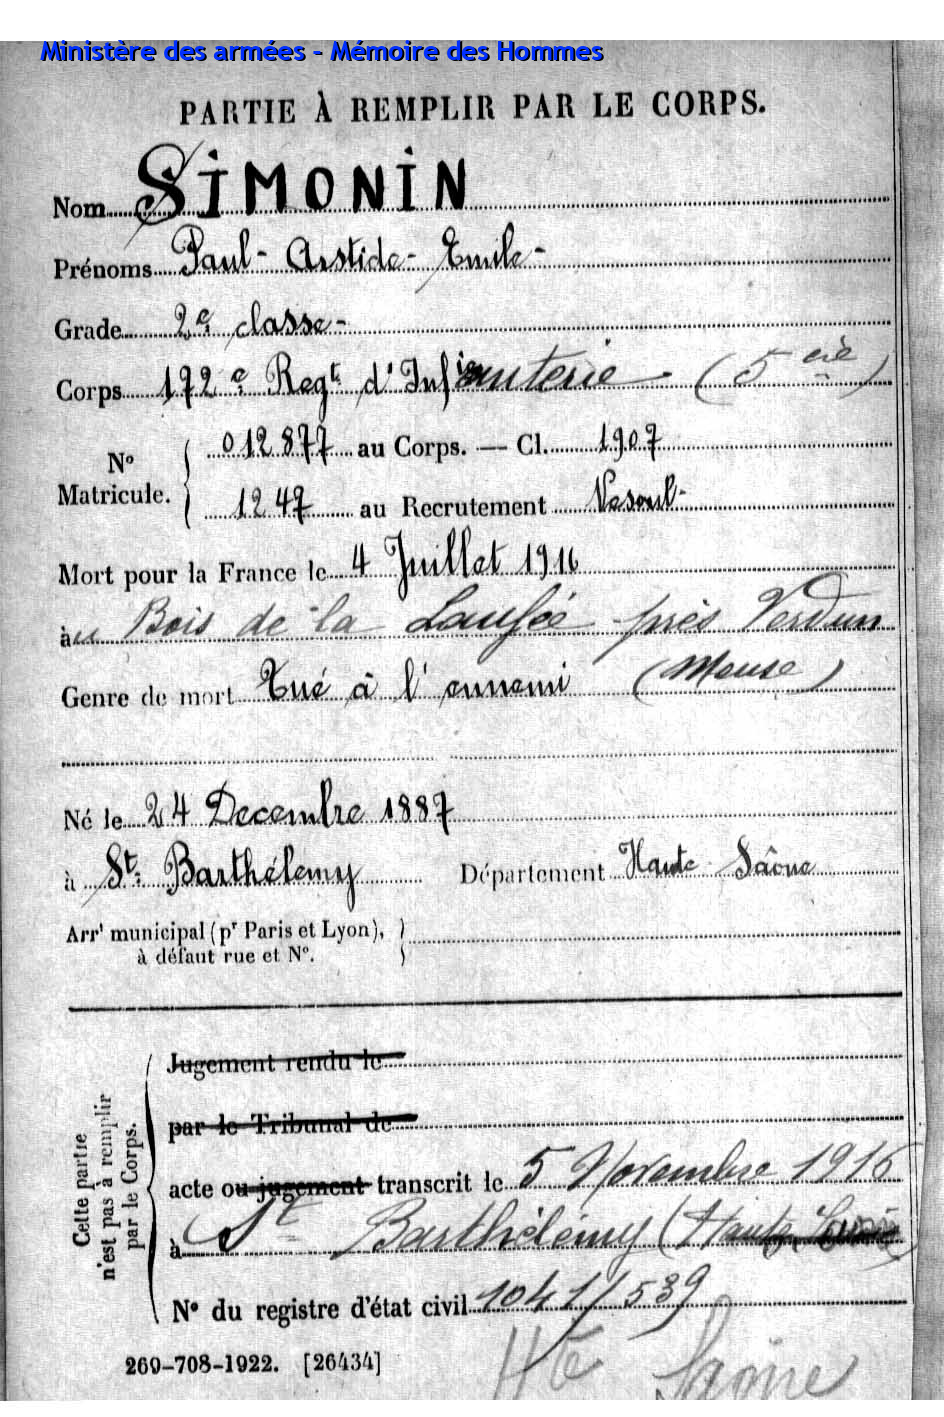 Ministère des armées - Mémoire des Hommes
PARTIE À REMPLIR PAR LE CORPS.
Nom SIMONIN
Prénoms Paul - Arstide - Emile -
Grade 2e classe -
Corps 172e Regt d'Infanterie (5 cie)
No Matricule. { 012877 au Corps. — Cl. 1907
1247 au Recrutement Vesoul -
Mort pour la France le 4 Juillet 1916
àu Bois de la Laufée près Verdun
Genre de mort Tué à l'ennemi (Meuse)
Né le 24 Decembre 1887
à St Barthélemy Département Haute Saône
Arrt municipal (pr Paris et Lyon), }
à défaut rue et No.
Cette partie
n'est pas à remplir
par le Corps.
Jugement rendu le
par le Tribunal de
acte ou jugement transcrit le 5 Novembre 1916
à St Barthélémy (Haute
No du registre d'état civil 1041/539
269-708-1922. [26434]
Hte Saône